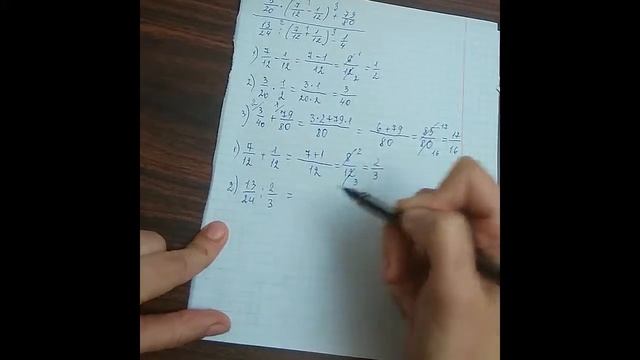 3/20 · (7/12 - 1/12) + 79/80
13/24 : (7/12 + 1/12) - 1/4
1) 7/12 - 1/12 = 7-1/12 = 6/12 = 1/2
2) 3/20 · 1/2 = 3·1/20·2 = 3/40
3) 3/40 + 79/80 = 3·2+79·1/80 = 6+79/80 = 85/80 = 17/16
1) 7/12 + 1/12 = 7+1/12 = 8/12 = 2/3
2) 13/24 : 2/3 =